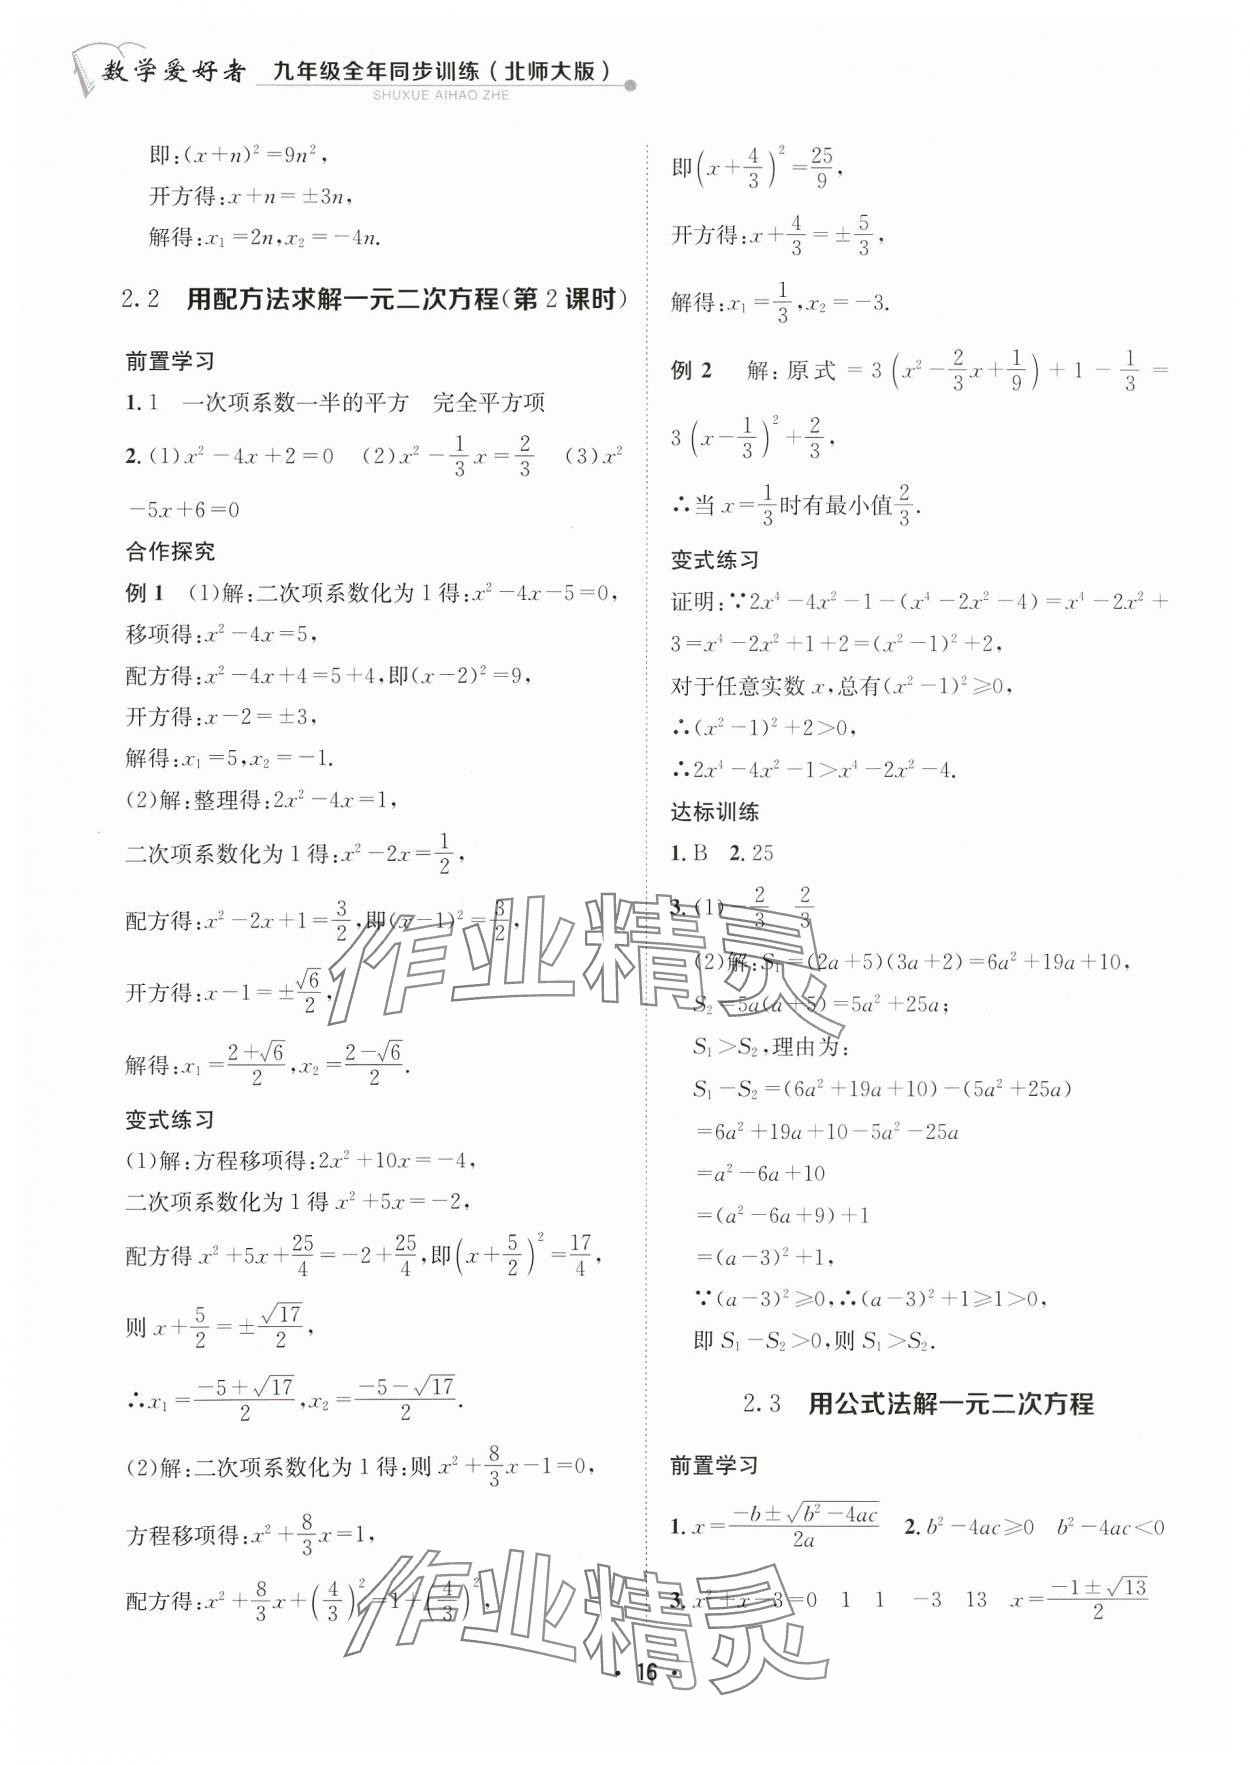 数学爱好者 九年级全年同步训练(北师大版)
SHUXUE AIHAO ZHE
即:(x+n)²=9n²,
开方得:x+n=±3n,
解得:x₁=2n,x₂=-4n.
2.2 用配方法求解一元二次方程(第2课时)
前置学习
1.1 一次项系数一半的平方 完全平方项
2.(1)x²-4x+2=0 (2)x²-1/3x=2/3 (3)x²
-5x+6=0
合作探究
例1 (1)解:二次项系数化为1得:x²-4x-5=0,
移项得:x²-4x=5,
配方得:x²-4x+4=5+4,即(x-2)²=9,
开方得:x-2=±3,
解得:x₁=5,x₂=-1.
(2)解:整理得:2x²-4x=1,
二次项系数化为1得:x²-2x=1/2,
配方得:x²-2x+1=3/2,即(x-1)²=3/2,
开方得:x-1=±√6/2,
解得:x₁=(2+√6)/2,x₂=(2-√6)/2.
变式练习
(1)解:方程移项得:2x²+10x=-4,
二次项系数化为1得x²+5x=-2,
配方得x²+5x+25/4=-2+25/4,即(x+5/2)²=17/4,
则x+5/2=±√17/2,
∴x₁=(-5+√17)/2,x₂=(-5-√17)/2.
(2)解:二次项系数化为1得:则x²+8/3x-1=0,
方程移项得:x²+8/3x=1,
配方得:x²+8/3x+(4/3)²=1+(4/3)²,
即(x+4/3)²=25/9,
开方得:x+4/3=±5/3,
解得:x₁=1/3,x₂=-3.
例2 解:原式=3(x²-2/3x+1/9)+1-1/3=
3(x-1/3)²+2/3,
∴当x=1/3时有最小值2/3.
变式练习
证明:∵2x⁴-4x²-1-(x⁴-2x²-4)=x⁴-2x²+
3=x⁴-2x²+1+2=(x²-1)²+2,
对于任意实数x,总有(x²-1)²≥0,
∴(x²-1)²+2>0,
∴2x⁴-4x²-1>x⁴-2x²-4.
达标训练
1.B 2.25
3.(1)-2/3 2/3
(2)解:S₁=(2a+5)(3a+2)=6a²+19a+10,
S₂=5a(a+5)=5a²+25a;
S₁>S₂,理由为:
S₁-S₂=(6a²+19a+10)-(5a²+25a)
=6a²+19a+10-5a²-25a
=a²-6a+10
=(a²-6a+9)+1
=(a-3)²+1,
∵(a-3)²≥0,∴(a-3)²+1≥1>0,
即S₁-S₂>0,则S₁>S₂.
2.3 用公式法解一元二次方程
前置学习
1.x=(-b±√(b²-4ac))/2a 2.b²-4ac≥0 b²-4ac<0
3.x²+x-3=0 1 1 -3 13 x=(-1±√13)/2
·16·
作业精灵
作业精灵